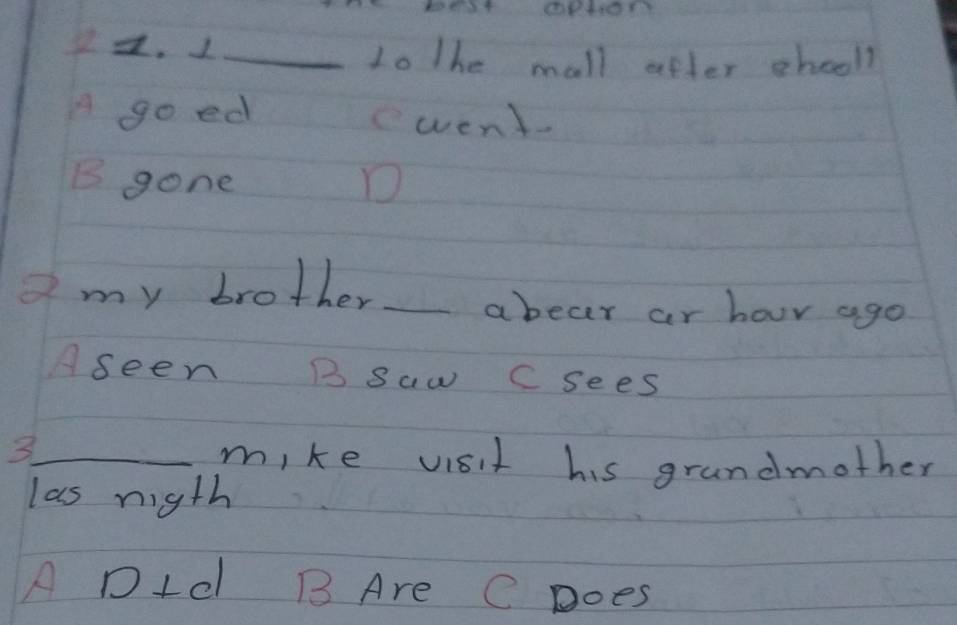 best option
2 1. I ____ to the mall after shcool?
A goed C went
B gone D
2 my brother ___ abear ar hour ago
A seen B saw C sees
3 ____ mike visit his grandmother
las nigth
A Did B Are C Does